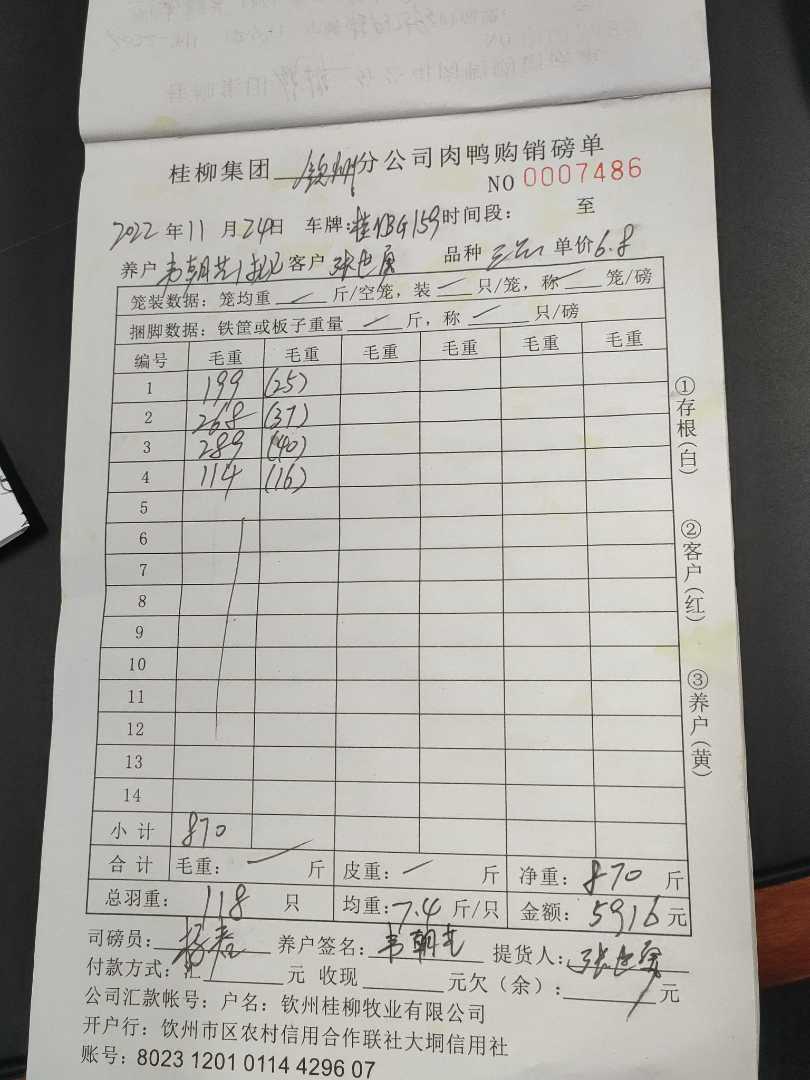 桂柳集团 钦州 分公司肉鸭购销磅单
NO 0007486
2022 年 11 月 24 日 车牌: 桂 BG159 时间段: 至
养户 韦朝 客户 张 品种 单价 6.8
笼装数据: 笼均重 斤/空笼, 装 只/笼, 称 笼/磅
捆脚数据: 铁筐或板子重量 斤, 称 只/磅
编号 毛重 毛重 毛重 毛重 毛重 毛重
1 199 (25)
2 268 (37)
3 289 (40)
4 114 (16)
5
6
7
8
9
10
11
12
13
14
小 计 870
合 计 毛重: 斤 皮重: 斤 净重: 870 斤
总羽重: 118 只 均重: 7.4 斤/只 金额: 5916 元
①存根(白)
②客户(红)
③养户(黄)
司磅员: 杨 养户签名: 韦朝 提货人: 张
付款方式: 汇 元 收现 元欠(余): 元
公司汇款帐号: 户名: 钦州桂柳牧业有限公司
开户行: 饮州市区农村信用合作联社大垌信用社
账号: 8023 1201 0114 4296 07